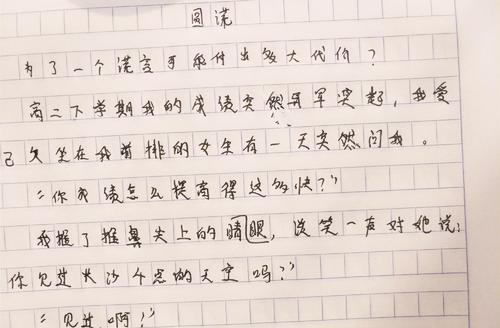 圆谎
为了一个谎言可能付出多大代价？
高二下学期我的成绩突然异军突起，我爱
已久坐在我前排的女生有一天突然问我。
“你成绩怎么提高得这么快？”
我推了推鼻尖上的眼，淡笑一声对她说：
你见过长沙个点的天空吗？”
“见过啊！”